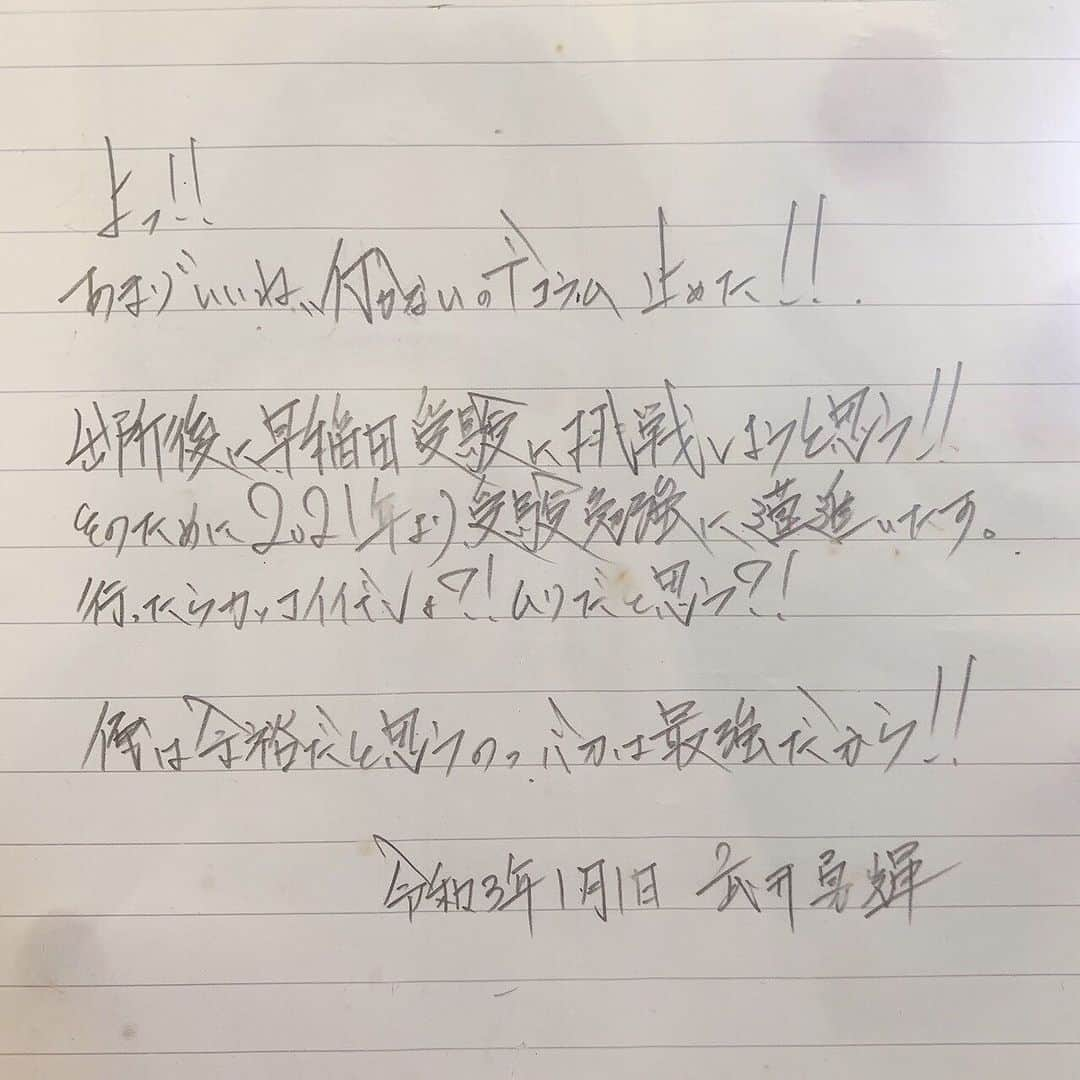 よっ!!
あまり"いいね"付かないのでコラム止めた!!
出所後に早稲田受験に挑戦しようと思う!!
そのために2021年より受験勉強に邁進いたす。
行ったらカッコイイでしょ?!ムリだと思う?!
俺は余裕だと思うの。バカは最強だから!!
令和3年1月1日 武井勇輝